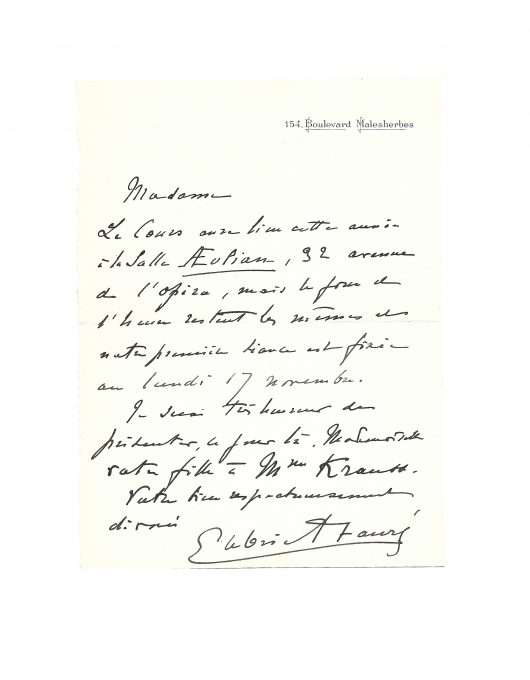 154, Boulevard Malesherbes
Madame
Le Cours aura lieu cette année
à la Salle Æolian, 32 avenue
de l'Opéra, mais le jour et
l'heure restent les mêmes et
notre première séance est fixée
au lundi 17 novembre.
Je serai très heureux de
présenter, ce jour là, Mademoiselle
votre fille à Mme Krauss.
Votre bien respectueusement
dévoué
Gabriel Fauré